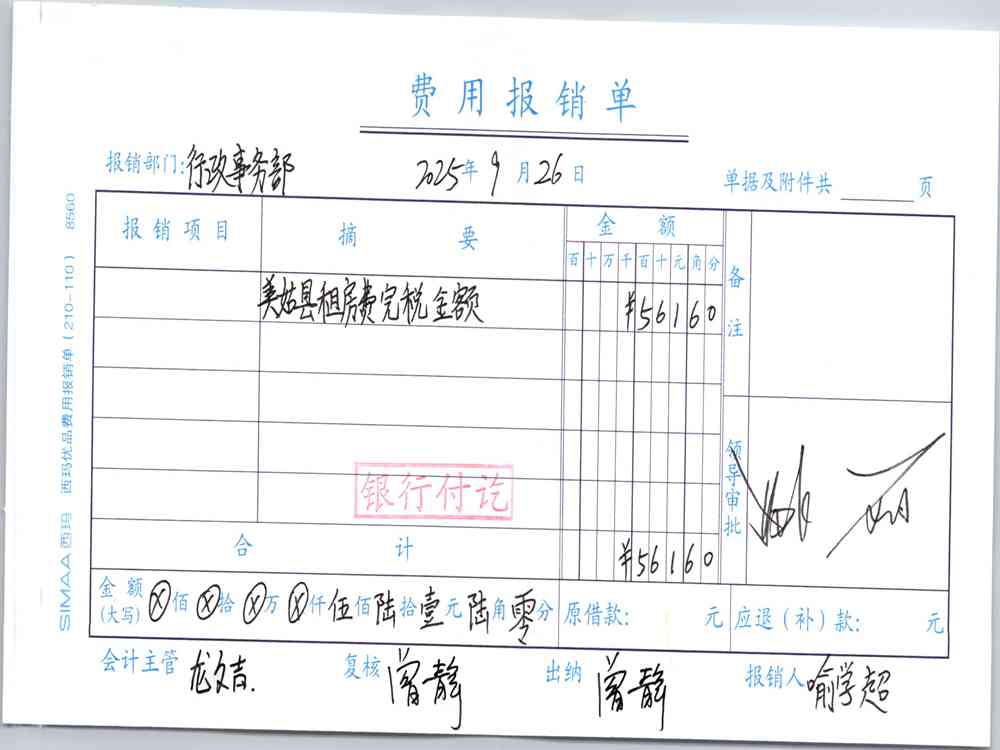 费用报销单
报销部门:行政事务部 2025年9月26日 单据及附件共 页
报销项目 摘要 金额 备注
百十万千百十元角分
美姑县租房费完税金额 ¥56160
银行付讫
领导审批
合计 ¥56160
金额(大写) ⊗佰⊗拾⊗万⊗仟伍佰陆拾壹元陆角零分 原借款: 元 应退(补)款: 元
会计主管 龙文吉. 复核 曾静 出纳 曾静 报销人 喻学超
SIMAA西玛 西玛优品费用报销单(210-110) 8560